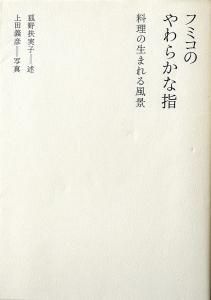 フミコの
やわらかな指
料理の生まれる風景
狐野扶実子＝述
上田義彦＝写真